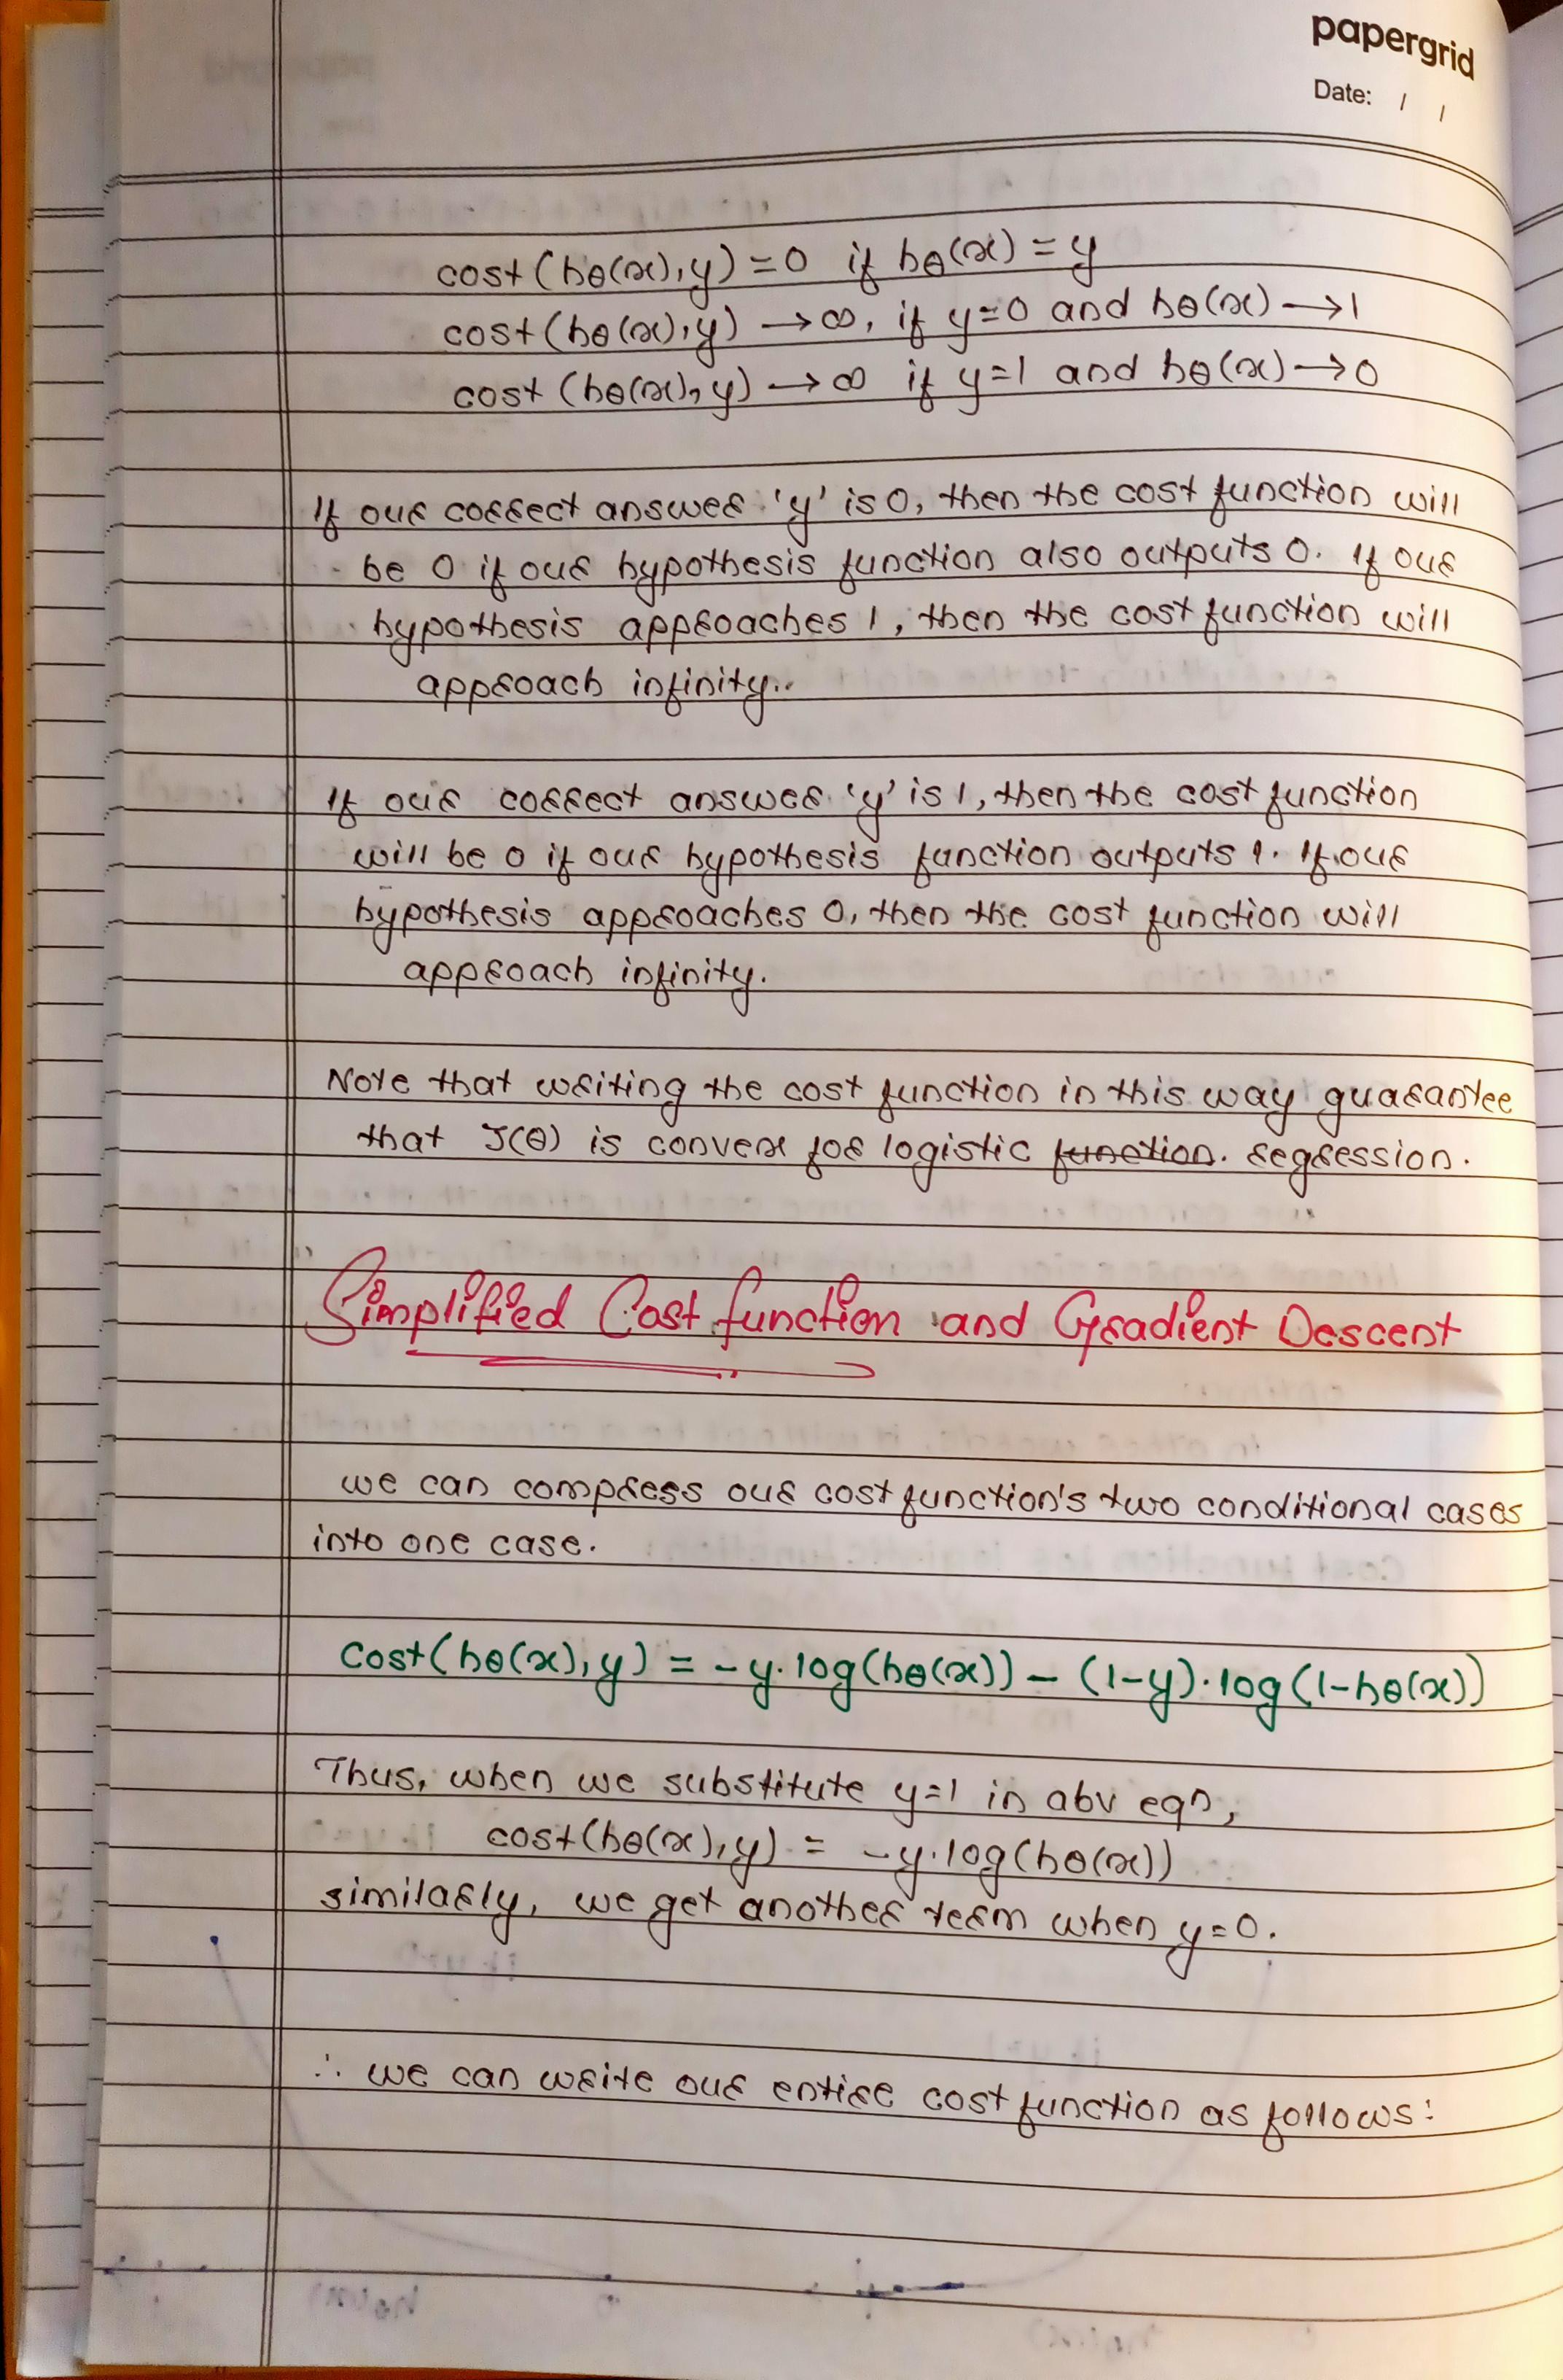 papergrid
Date: / /
cost(hθ(x),y) = 0 if hθ(x) = y
cost(hθ(x),y) → ∞, if y=0 and hθ(x) → 1
cost (hθ(x),y) → ∞ if y=1 and hθ(x) → 0
If our correct answer 'y' is 0, then the cost function will
be 0 if our hypothesis function also outputs 0. If our
hypothesis approaches 1, then the cost function will
approach infinity..
If our correct answer 'y' is 1, then the cost function
will be 0 if our hypothesis function outputs 1. If our
hypothesis approaches 0, then the cost function will
approach infinity.
Note that writing the cost function in this way guarantee
that J(θ) is convex for logistic function. regression.
Simplified Cost function and Gradient Descent
we can compress our cost function's two conditional cases
into one case.
cost(hθ(x),y) = -y.log(hθ(x)) - (1-y).log(1-hθ(x))
Thus, when we substitute y=1 in abv eqn,
cost(hθ(x),y) = -y.log(hθ(x))
similarly, we get another term when y=0.
∴ we can write our entire cost function as follows: